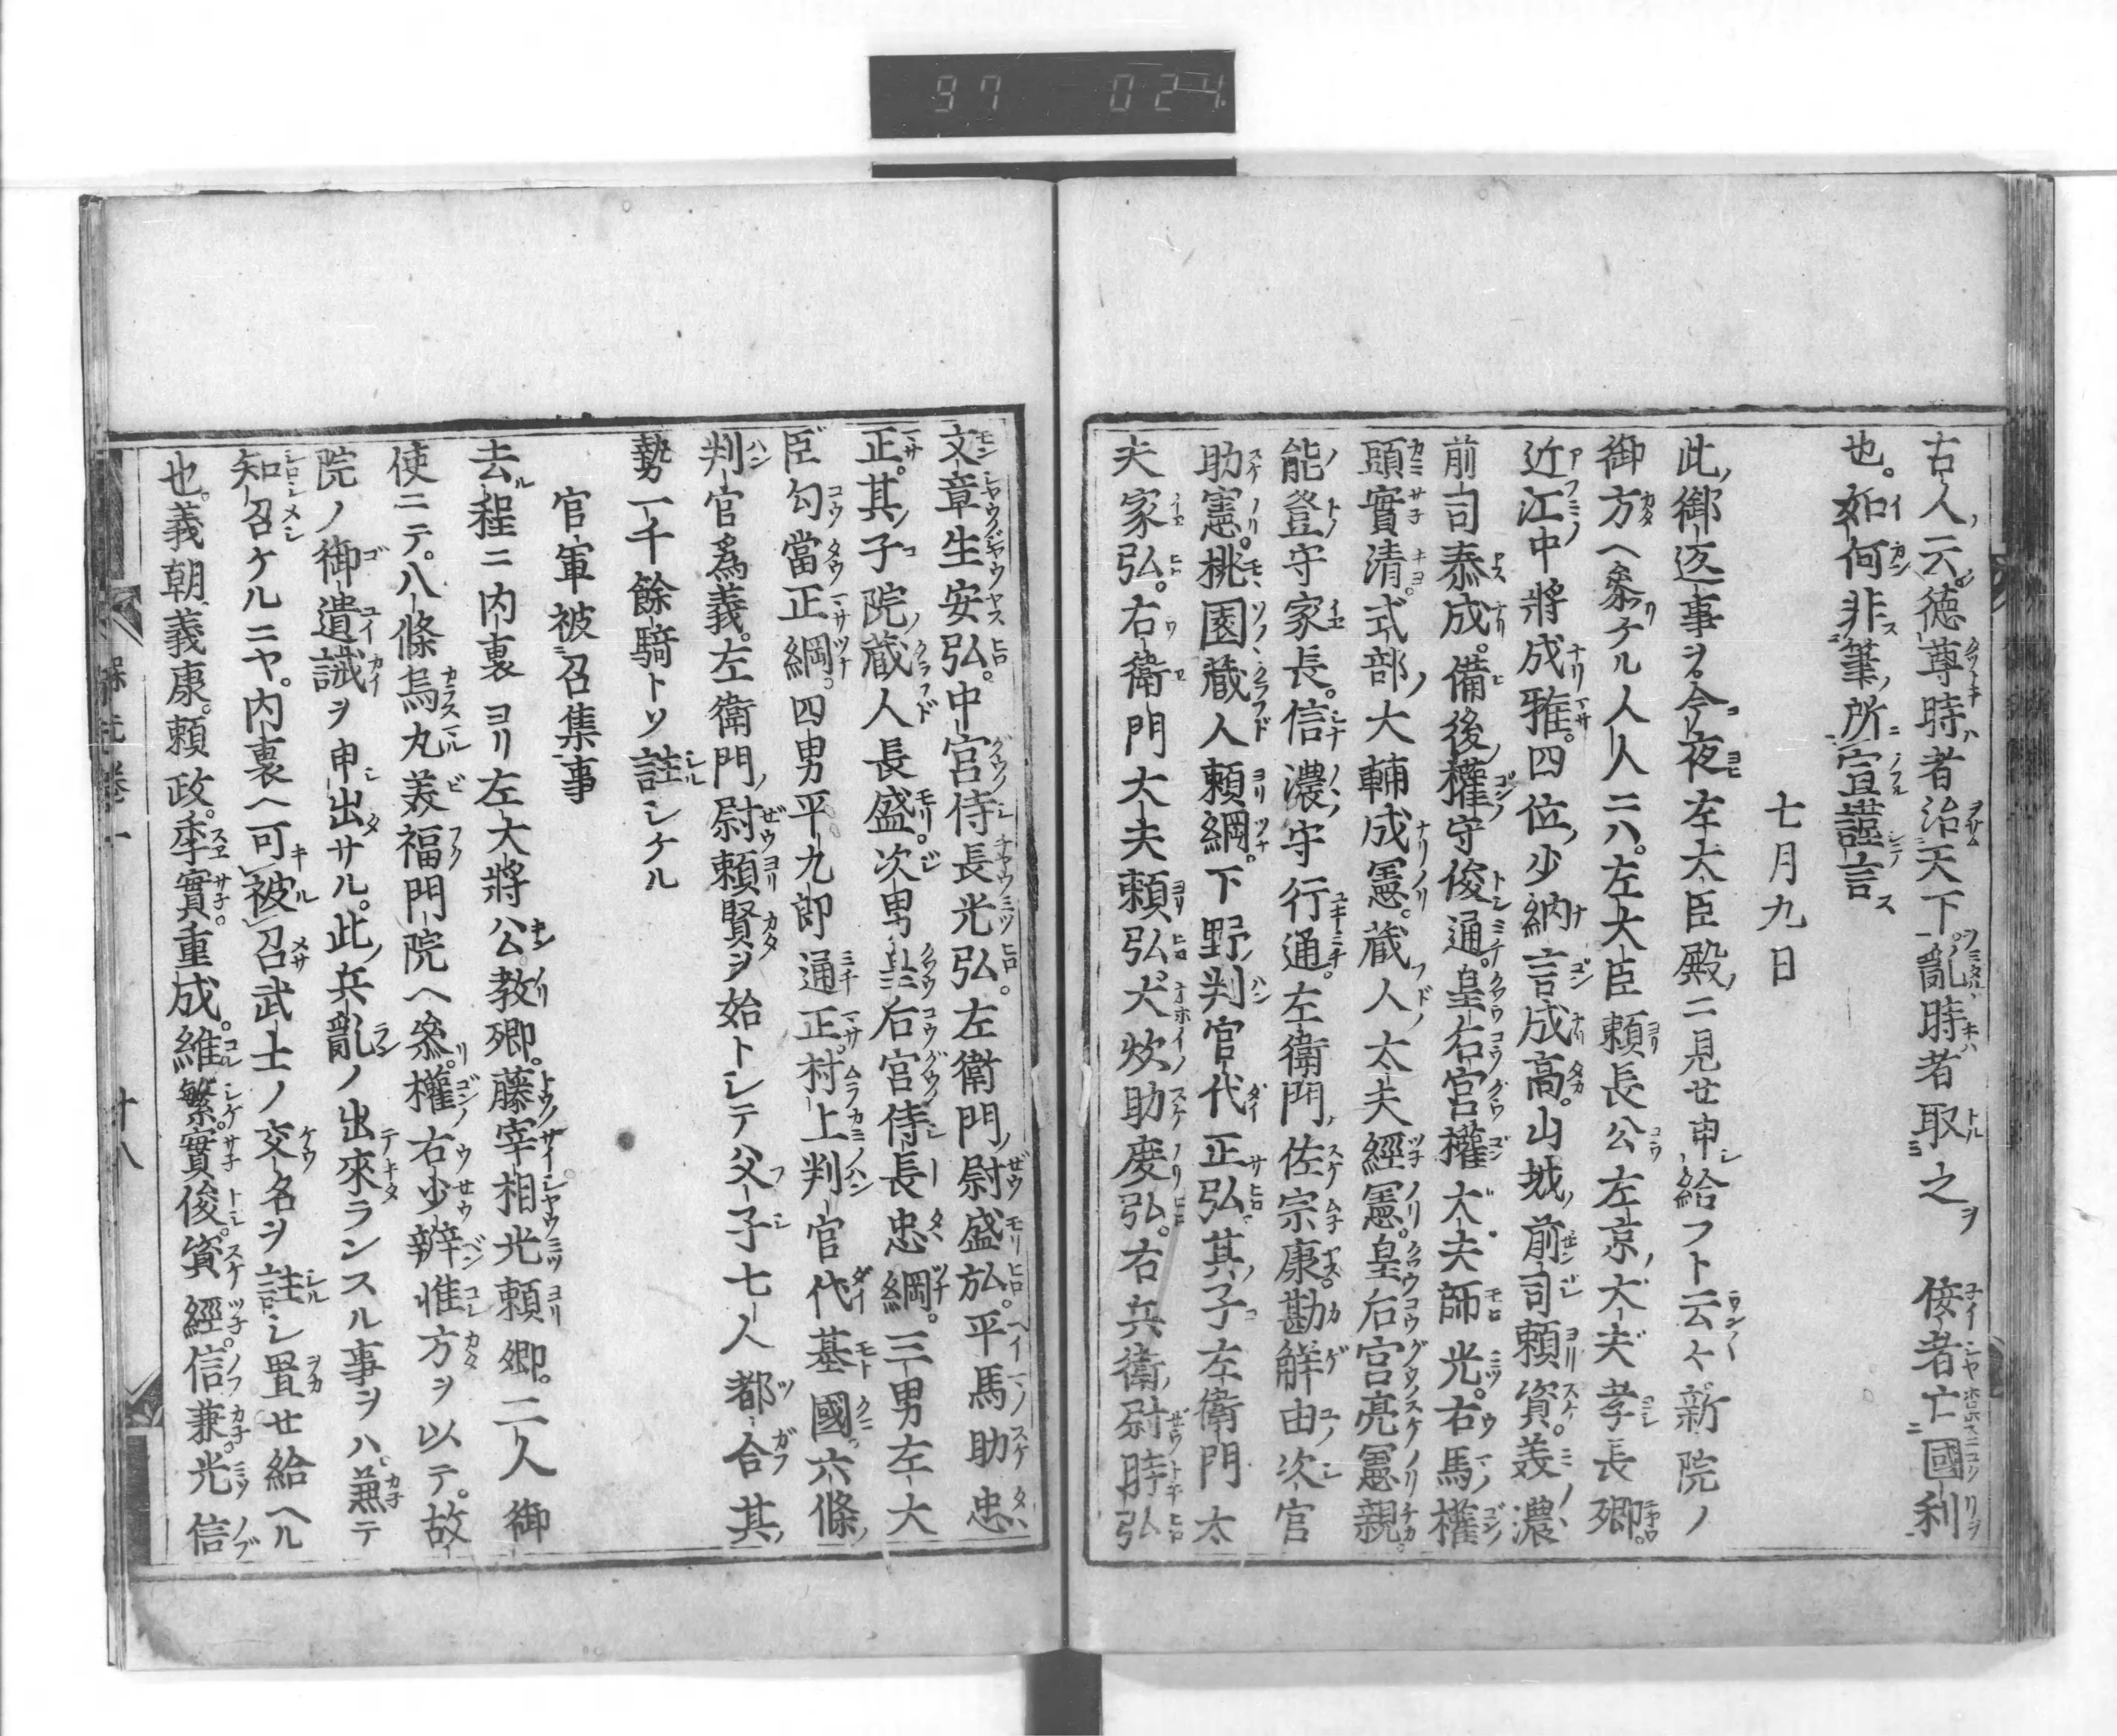 97 024
古人云徳尊時者治天下亂時者取之 侫者亡國利
也。如何非筆所宣謹言
七月九日
此御返事ヲ今夜左大臣殿ニ見せ申給フト云々新院ノ
御方ヘ參ケル人人ニハ。左大臣頼長公左京大夫孝長卿。
近江中將成雅。四位少納言成高。山城前司頼資。美濃
前司泰成。備後權守俊通。皇后宮權大夫師光。右馬權
頭實清。式部大輔成憲。蔵人大夫經憲。皇后宮亮憲親。
能登守家長。信濃守行通。左衛門佐宗康。勘解由次官
助憲。桃園蔵人頼綱。下野判官代正弘。其子左衛門太
夫家弘。右衛門大夫頼弘。大炊助度弘。右兵衛尉時弘
文章生安弘。中宮侍長光弘。左衛門尉盛弘。平馬助忠
正。其子院蔵人長盛。次男皇后宮侍長忠綱。三男左大
臣勾當正綱。四男平九郎通正。村上判官代基國。六條
判官爲義。左衛門尉頼賢ヲ始トシテ父子七人都合其
勢一千餘騎トソ註シケル
官軍被召集事
去程ニ内裏ヨリ左大將公教卿。藤宰相光頼卿。二人御
使ニテ。八條烏丸美福門院ヘ參。權右少辨惟方ヲ以テ。故
院ノ御遺誡ヲ申出サル。此兵亂ノ出來ランスル事ヲハ。兼テ
知召ケルニヤ。内裏ヘ可被召武士ノ交名ヲ註シ置せ給ヘル
也。義朝。義康。頼政。季實。重成。維繁。實俊。資經。信兼。光信
保元巻一 十八